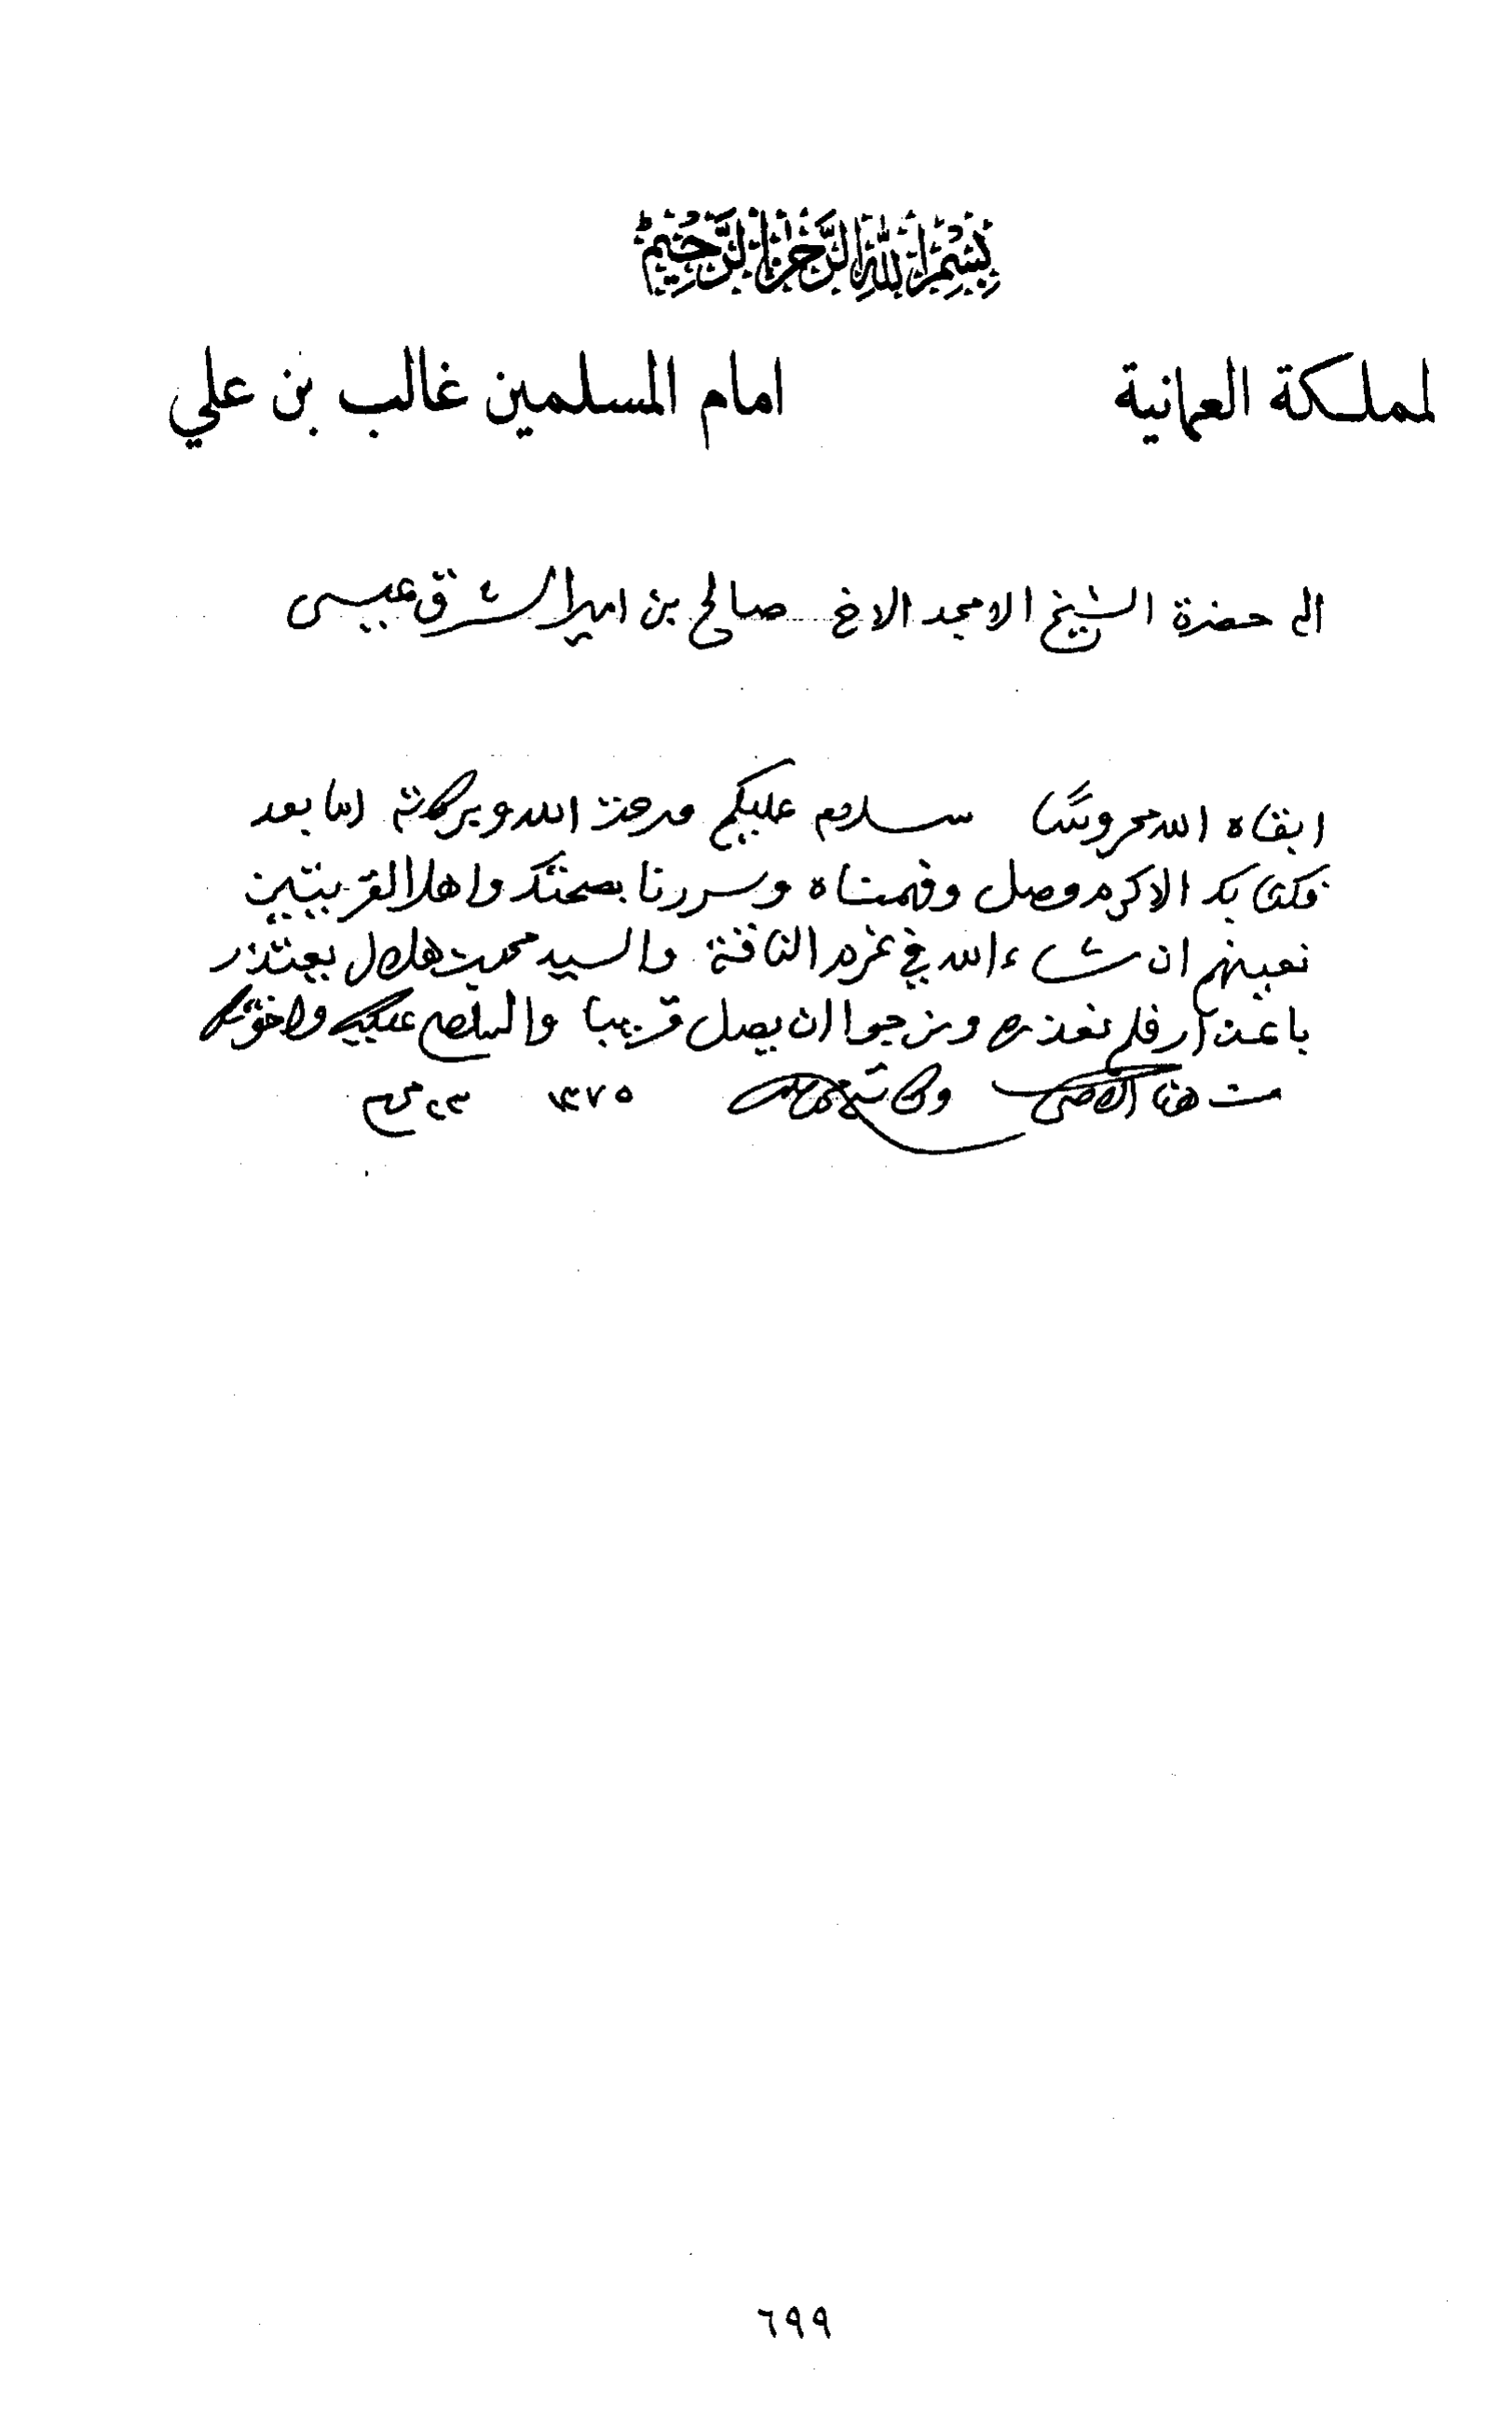 بِسْمِ اللهِ الرَّحْمٰنِ الرَّحِيْمِ
لمملكة العمانية
امام المسلمين غالب بن علي
الى حضرة الشيخ الامجد الاخ صالح بن امير الشرق عيسى
ابقاه الله محروسًا سلام عليكم ورحمة الله وبركاته اما بعد
فكتابكم الاكرم وصل وفهمناه وسررنا بصحتكم واهل القريتين
نعينهم ان شاء الله في غرم الناقة والسيد محمد بن هلال يعتذر
باعذار فلم نعذره ونرجوا ان يصل قريبا والسلام عليكم واخوتكم
من هنا وكاتبه
١٣٧٥ ٢٣ محرم
٦٩٩